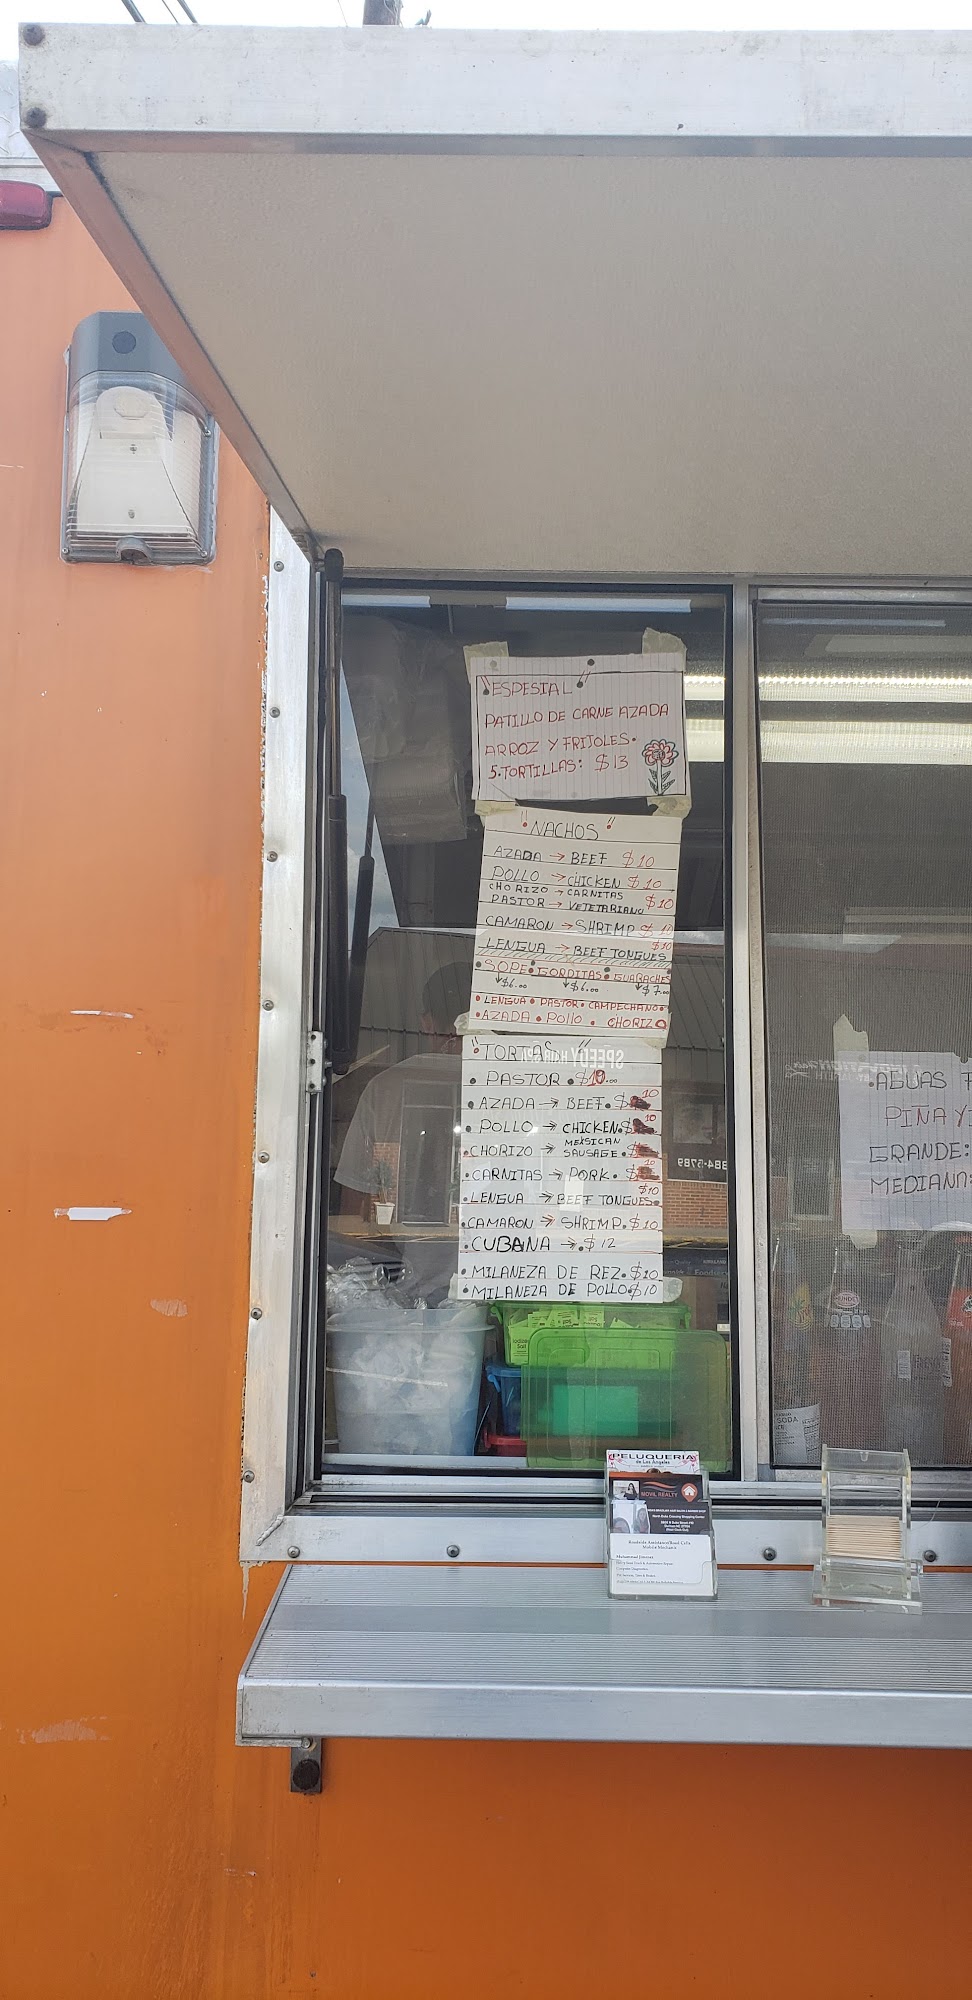 "ESPESIAL"
PATILLO DE CARNE AZADA
ARROZ Y FRIJOLES.
5.TORTILLAS: $13
"NACHOS"
AZADA → BEEF $10
POLLO → CHICKEN $10
CHORIZO → CARNITAS
PASTOR → VETETARIANO $10
CAMARON → SHRIMP $10
LENGUA → BEEF TONGUES $10
• SOPE • GORDITAS • GUARACHES
$6.00 $6.00 $7.00
• LENGUA • PASTOR • CAMPECHANO •
• AZADA • POLLO • CHORIZO
"TORTAS"
• PASTOR • $10.00
• AZADA → BEEF. $ 10
• POLLO → CHICKEN $ 10
• CHORIZO → MEXSICAN SAUSAGE. $ 10
• CARNITAS → PORK. $ 10
• LENGUA → BEEF TONGUES. $10
• CAMARON → SHRIMP. $10
• CUBANA → $12
• MILANEZA DE REZ. $10
• MILANEZA DE POLLO $10
SPEEDY
• AGUAS
PIÑA Y
GRANDE:
MEDIANA:
Iodized
Salt
SODA
PELUQUERIA
de Los Angeles
MOVIL REALTY
Roadside Assistance/Road Calls
Mobile Mechanic